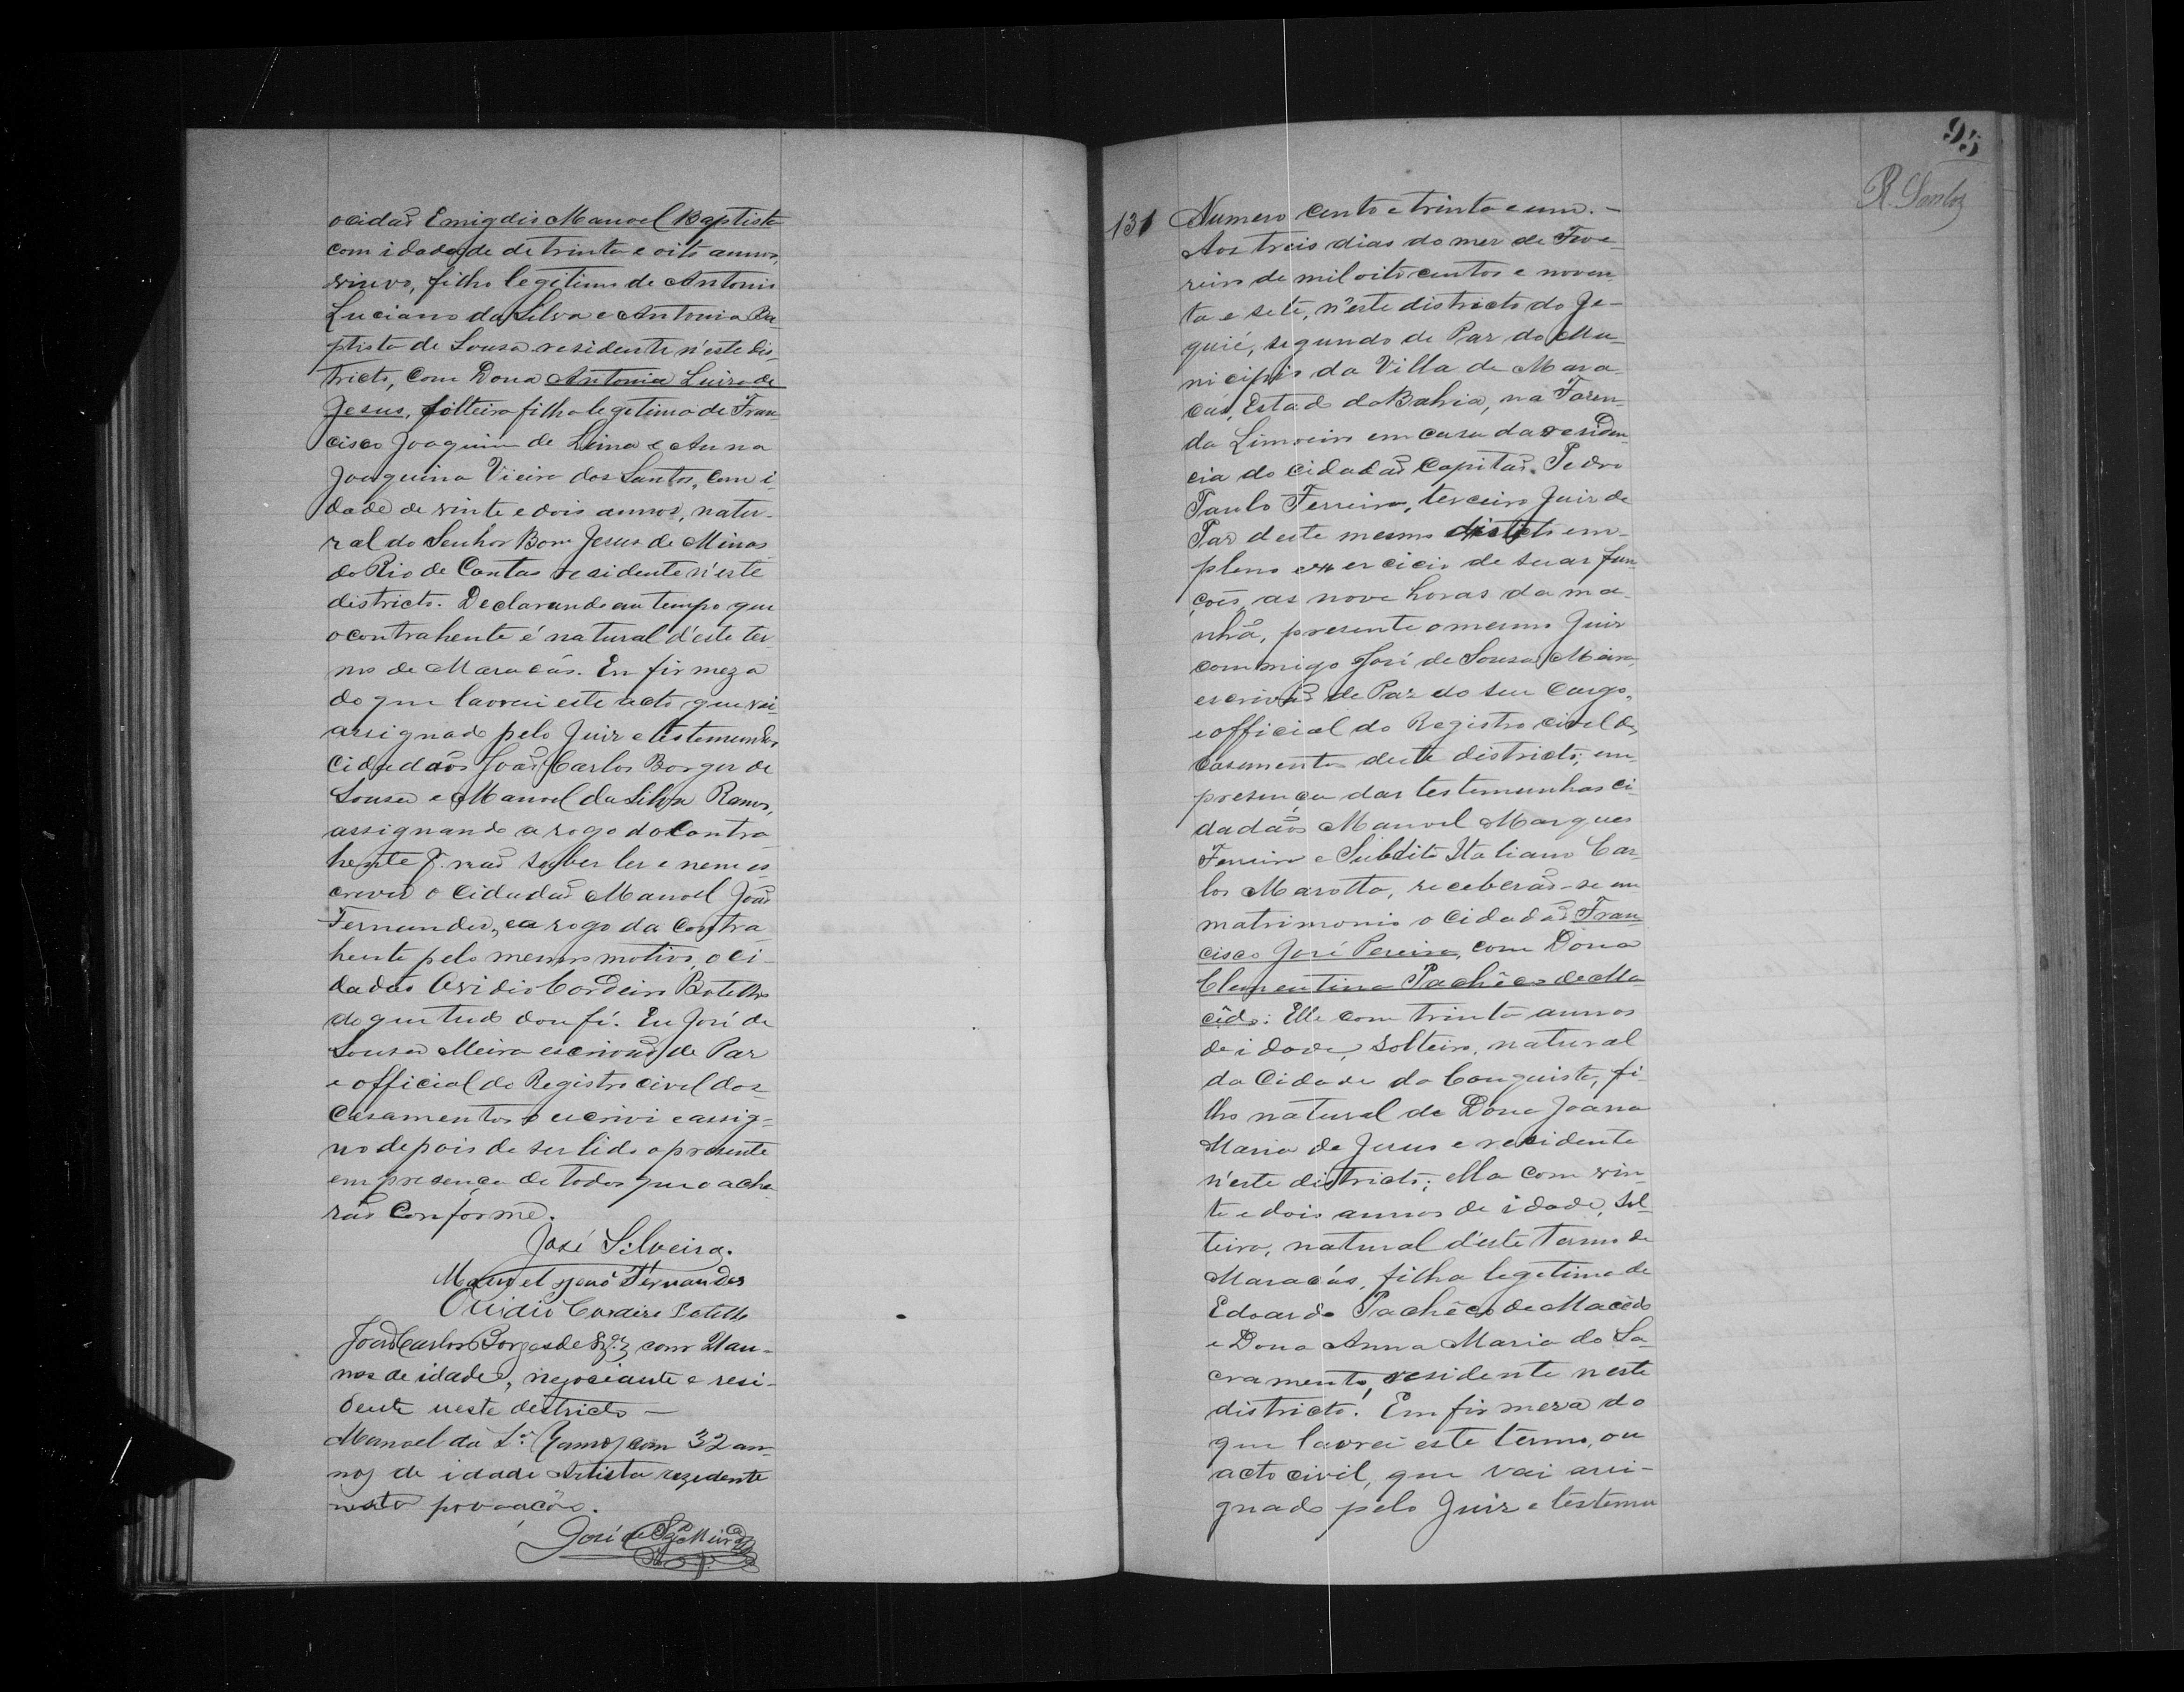 ocidaõ Emigdio Manoel Baptista
com idadade de trinta e oito annos,
viuvo, filho legitimo de Antonio
Luciano da Silva e Antonia Ba-
ptista de Sousa residente n'este dis-
tricto, com Dona Antonia Luisa de
Jesus, solteira filha legitima de Fran-
cisco Joaquim de Lima e Anna
Joaquina Vieira dos Santos, com i-
dade de vinte e dois annos, natu-
ral do Senhor Bom Jesus de Minas
do Rio de Contas residente n'este
districto. Declarando em tempo que
o contrahente é natural d'este ter-
mo de Maracás. Em firmeza
do que lavrei este acto que vai
assignado pelo Juiz e testemunhas
Cidadaõs Joaõ Carlos Borges de
Sousa e Manoel da Silva Ramos,
assignando a rogo do Contra-
hente p. naõ saber ler e nem es-
crever o Cidadaõ Manoel José
Fernandes, e a rogo da Contra-
hente pelo mesmo motivo, o ci-
dadaõ Ovidio Cordeiro Botelho
do que tudo dou fé. Eu José de
Sousa Meira escrivaõ de Paz
e official do Registro civel dos
Casamentos o escrivi e assig-
no depois de ser lido o presente
em presença de todos que o acha-
raõ Conforme.
José Silveira.
Manoel José Fernandes
Ovidio Cordeiro Botelho
Joaõ Carlos Borges de Sz.ª com 21 an-
nos de idade, negociante e resi-
dente neste districto —
Manoel da S.ª Ramos com 32 an-
nos de idade Artista rezidente
nesta povoação.
José de Sz.ª Meira
95
R. Santos
131 Numero cento e trinta e um. —
Aos treis dias do mez de Feve-
reiro de mil oito centos e noven-
ta e sete, n'este districto do Je-
quié, segundo de Paz do Mu-
nicipio da Villa de Mara-
cás, Estado da Bahia, na Fazen-
da Limoeiro em casa da residen-
cia do cidadaõ Capitaõ Pedro
Paulo Ferreira, terceiro Juiz de
Paz deste mesmo districto em
pleno exercicio de suas fun-
çoẽs, as nove horas da ma-
nhã, presente o mesmo Juiz
commigo José de Sousa Meira,
escrivaõ de Paz do seu Cargo,
e official do Registro civel dos
Casamentos deste districto; em
presença das testemunhas ci-
dadaõs Manoel Marques
Ferreira e Subdito Italiano Car-
los Marotta, receberaõ-se em
matrimonio o Cidadaõ Fran-
cisco José Pereira, com Dona
Clementina Pachêco de Ma-
cêdo: Elle com trinta annos
de idade, solteiro, natural
da Cidade da Conquista, fi-
lho natural de Dona Joana
Maria de Jesus e residente
n'este districto; ella com vin-
te e dois annos de idade, sol-
teira, natural d'este Termo de
Maracás, filha legetima de
Edoardo Pachêco de Macêdo
e Dona Anna Maria do Sa-
cramento, residente neste
districto. Em firmeza do
que lavrei este termo, ou
acto civil, que vai assi-
gnado pelo Juiz e testemu